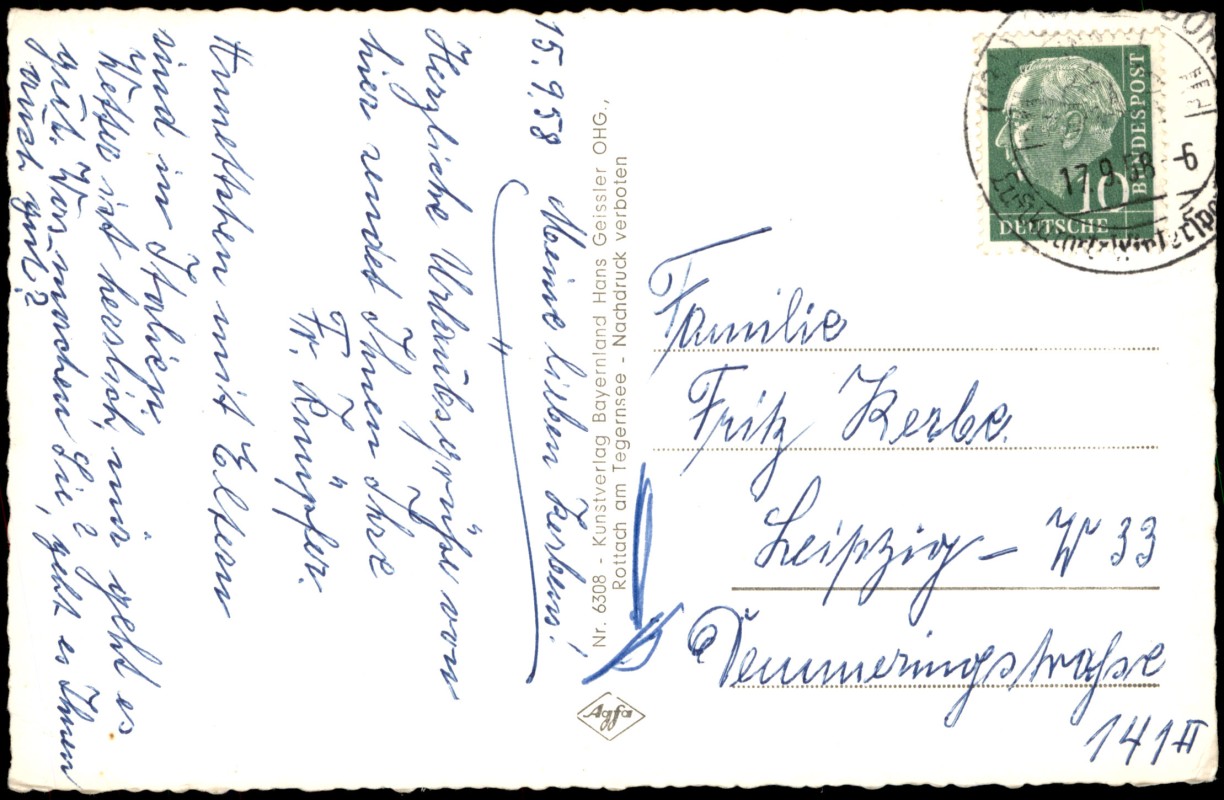 15.9.58
Meine lieben Kerbens!
Herzliche Urlaubsgrüße von
hier sendet Ihnen Ihre
Fr. Knüpfer.
Annettchen mit Eltern
sind in Italien.
Wetter ist herrlich, mir geht es
gut. Was machen Sie? geht es Ihnen
auch gut?
Nr. 6308 - Kunstverlag Bayernland Hans Geissler OHG.,
Rottach am Tegernsee - Nachdruck verboten
Agfa
DEUTSCHE
BUNDESPOST
10
17.9.58-6
Familie
Fritz Kerbe.
Leipzig - W 33
Demmeringstraße
141 II